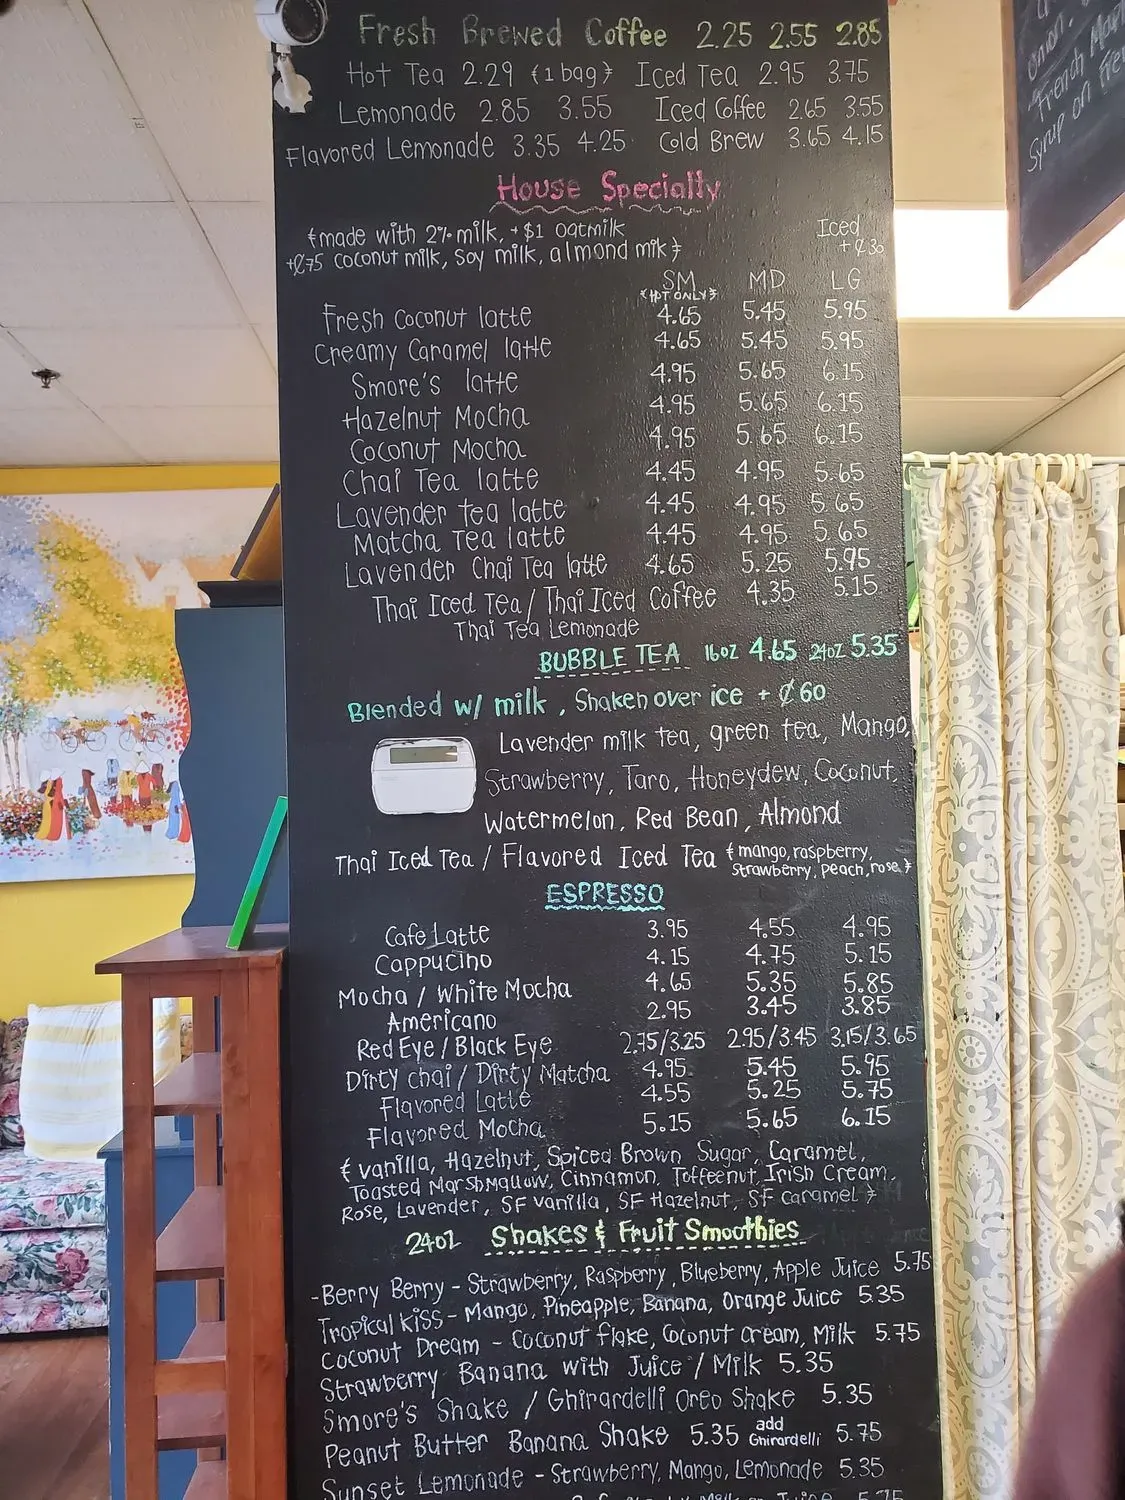 Fresh Brewed Coffee 2.25 2.55 2.85
Hot Tea 2.29 {1 bag} Iced Tea 2.95 3.75
Lemonade 2.85 3.55 Iced Coffee 2.65 3.55
Flavored Lemonade 3.35 4.25 Cold Brew 3.65 4.15
House Specialty
{made with 2% milk, +$1 oatmilk
+¢75 coconut milk, soy milk, almond mik}
Iced
+¢30
SM MD LG
{HOT ONLY}
Fresh Coconut latte 4.65 5.45 5.95
Creamy Caramel latte 4.65 5.45 5.95
Smore's latte 4.95 5.65 6.15
Hazelnut Mocha 4.95 5.65 6.15
Coconut Mocha 4.95 5.65 6.15
Chai Tea latte 4.45 4.95 5.65
Lavender tea latte 4.45 4.95 5.65
Matcha Tea latte 4.45 4.95 5.65
Lavender Chai Tea latte 4.65 5.25 5.95
Thai Iced Tea / Thai Iced Coffee 4.35 5.15
Thai Tea Lemonade
BUBBLE TEA 16oz 4.65 24oz 5.35
Blended w/ milk, Shaken over ice + ¢60
Lavender milk tea, green tea, Mango,
Strawberry, Taro, Honeydew, Coconut,
Watermelon, Red Bean, Almond
Thai Iced Tea / Flavored Iced Tea {mango, raspberry,
strawberry, peach, rose}
ESPRESSO
Cafe Latte 3.95 4.55 4.95
Cappucino 4.15 4.75 5.15
Mocha / White Mocha 4.65 5.35 5.85
Americano 2.95 3.45 3.85
Red Eye / Black Eye 2.75/3.25 2.95/3.45 3.15/3.65
Dirty chai / Dirty Matcha 4.95 5.45 5.95
Flavored Latte 4.55 5.25 5.75
Flavored Mocha 5.15 5.65 6.15
{vanilla, Hazelnut, Spiced Brown Sugar, Caramel,
Toasted Marshmallow, Cinnamon, Toffeenut, Irish Cream,
Rose, Lavender, SF vanilla, SF Hazelnut, SF caramel}
24oz Shakes & Fruit Smoothies
-Berry Berry - Strawberry, Raspberry, Blueberry, Apple Juice 5.75
Tropical Kiss - Mango, Pineapple, Banana, Orange Juice 5.35
Coconut Dream - Coconut flake, Coconut cream, Milk 5.75
Strawberry Banana with Juice / Milk 5.35
Smore's Shake / Ghirardelli Oreo Shake 5.35
Peanut Butter Banana Shake 5.35 add Ghirardelli 5.75
Sunset Lemonade - Strawberry, Mango, Lemonade 5.35
Milk or Juice 5.75
onion,
French
Syrup on